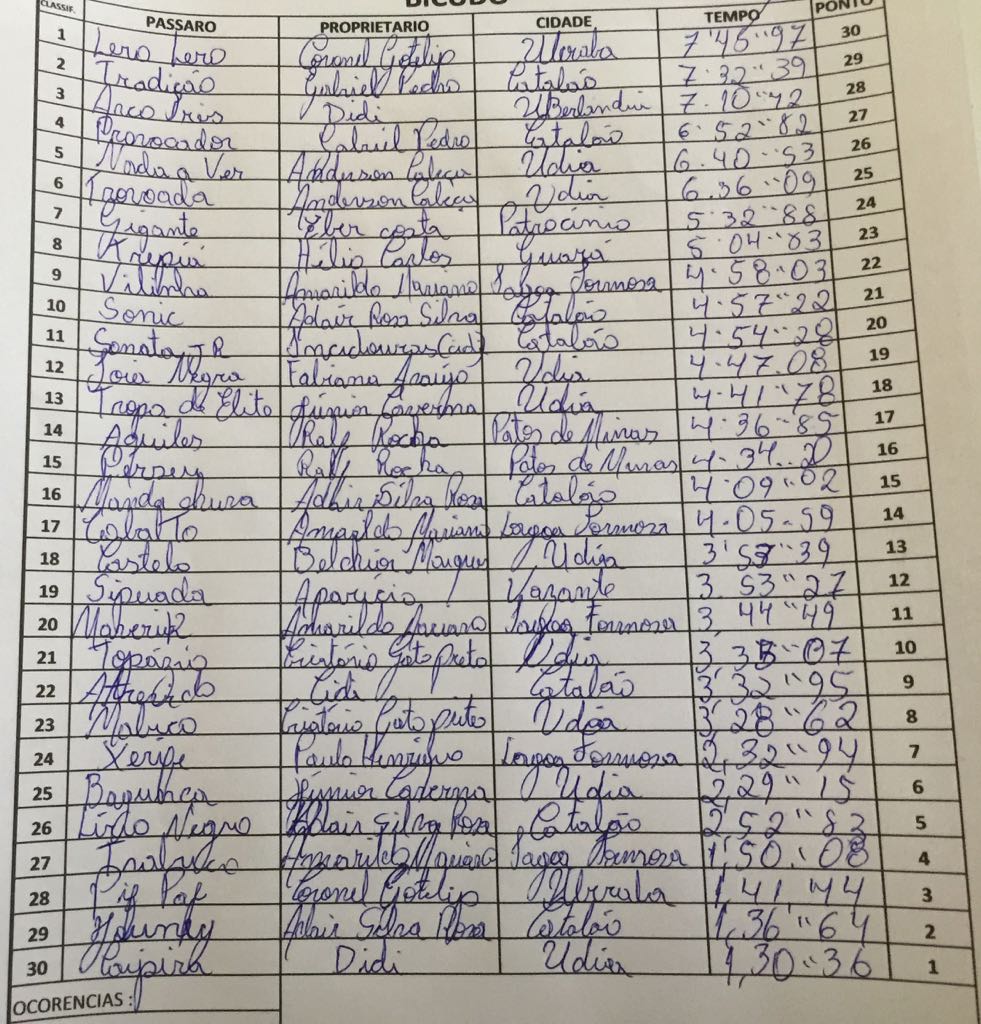 BICUDO
CLASSIF. PASSARO PROPRIETARIO CIDADE TEMPO PONTO
1 Lero Lero Coronel Gotelip Uberaba 7'45"97 30
2 Tradição Gabriel Pedro Catalão 7.32"39 29
3 Arco Iris Didi UBerlandia 7.10"42 28
4 Provocador Gabriel Pedro Catalão 6.52"82 27
5 Nada a Ver Anderson Calçu Udia 6.40"53 26
6 Trovoada Anderson Calçu Udia 6.36"09 25
7 Gigante Eber costa Patrocinio 5.32"88 24
8 Hélio Carlos Guará 5.04"83 23
9 Vilinha Amarildo Mariano Lagoa Formosa 4.58.03 22
10 Sonic Adair Rosa Silva Catalão 4.57"22 21
11 Sonata JR Catalão 4.54"28 20
12 Negra Fabiana Araujo Udia 4.47.08 19
13 Tropa de Elite Júnior Caverna Udia 4.41"78 18
14 Aquiles Ralf Rocha Patos de Minas 4.36"85 17
15 Perseu Ralf Rocha Patos de Minas 4.34..20 16
16 Manda chuva Adair Silva Rosa Catalão 4.09"02 15
17 Cobalto Amarildo Mariano Lagoa Formosa 4.05.59 14
18 Castelo Belchior Marques Udia 3'53"39 13
19 Sipuada Aparicio Vazante 3.53"27 12
20 Maverik Amarildo Mariano Lagoa Formosa 3,44"49 11
21 Topázio Criatório Gato preto Udia 3,33"07 10
22 Atrevido Cidi Catalão 3,32"95 9
23 Maluco Criatório Gato preto Udia 3,28"62 8
24 Xerife Paulo Henrique Lagoa Formosa 2,32"94 7
25 Bagunça Júnior Caverna Udia 2,29"15 6
26 Lirio Negro Adair Silva Rosa Catalão 2,52"83 5
27 Amarildo Mariano Lagoa Formosa 1,50.08 4
28 Pif Paf Coronel Gotelip Uberaba 1,41,44 3
29 Adair Silva Rosa Catalão 1,36"64 2
30 Caipira Didi Udia 1,30"36 1
OCORENCIAS :